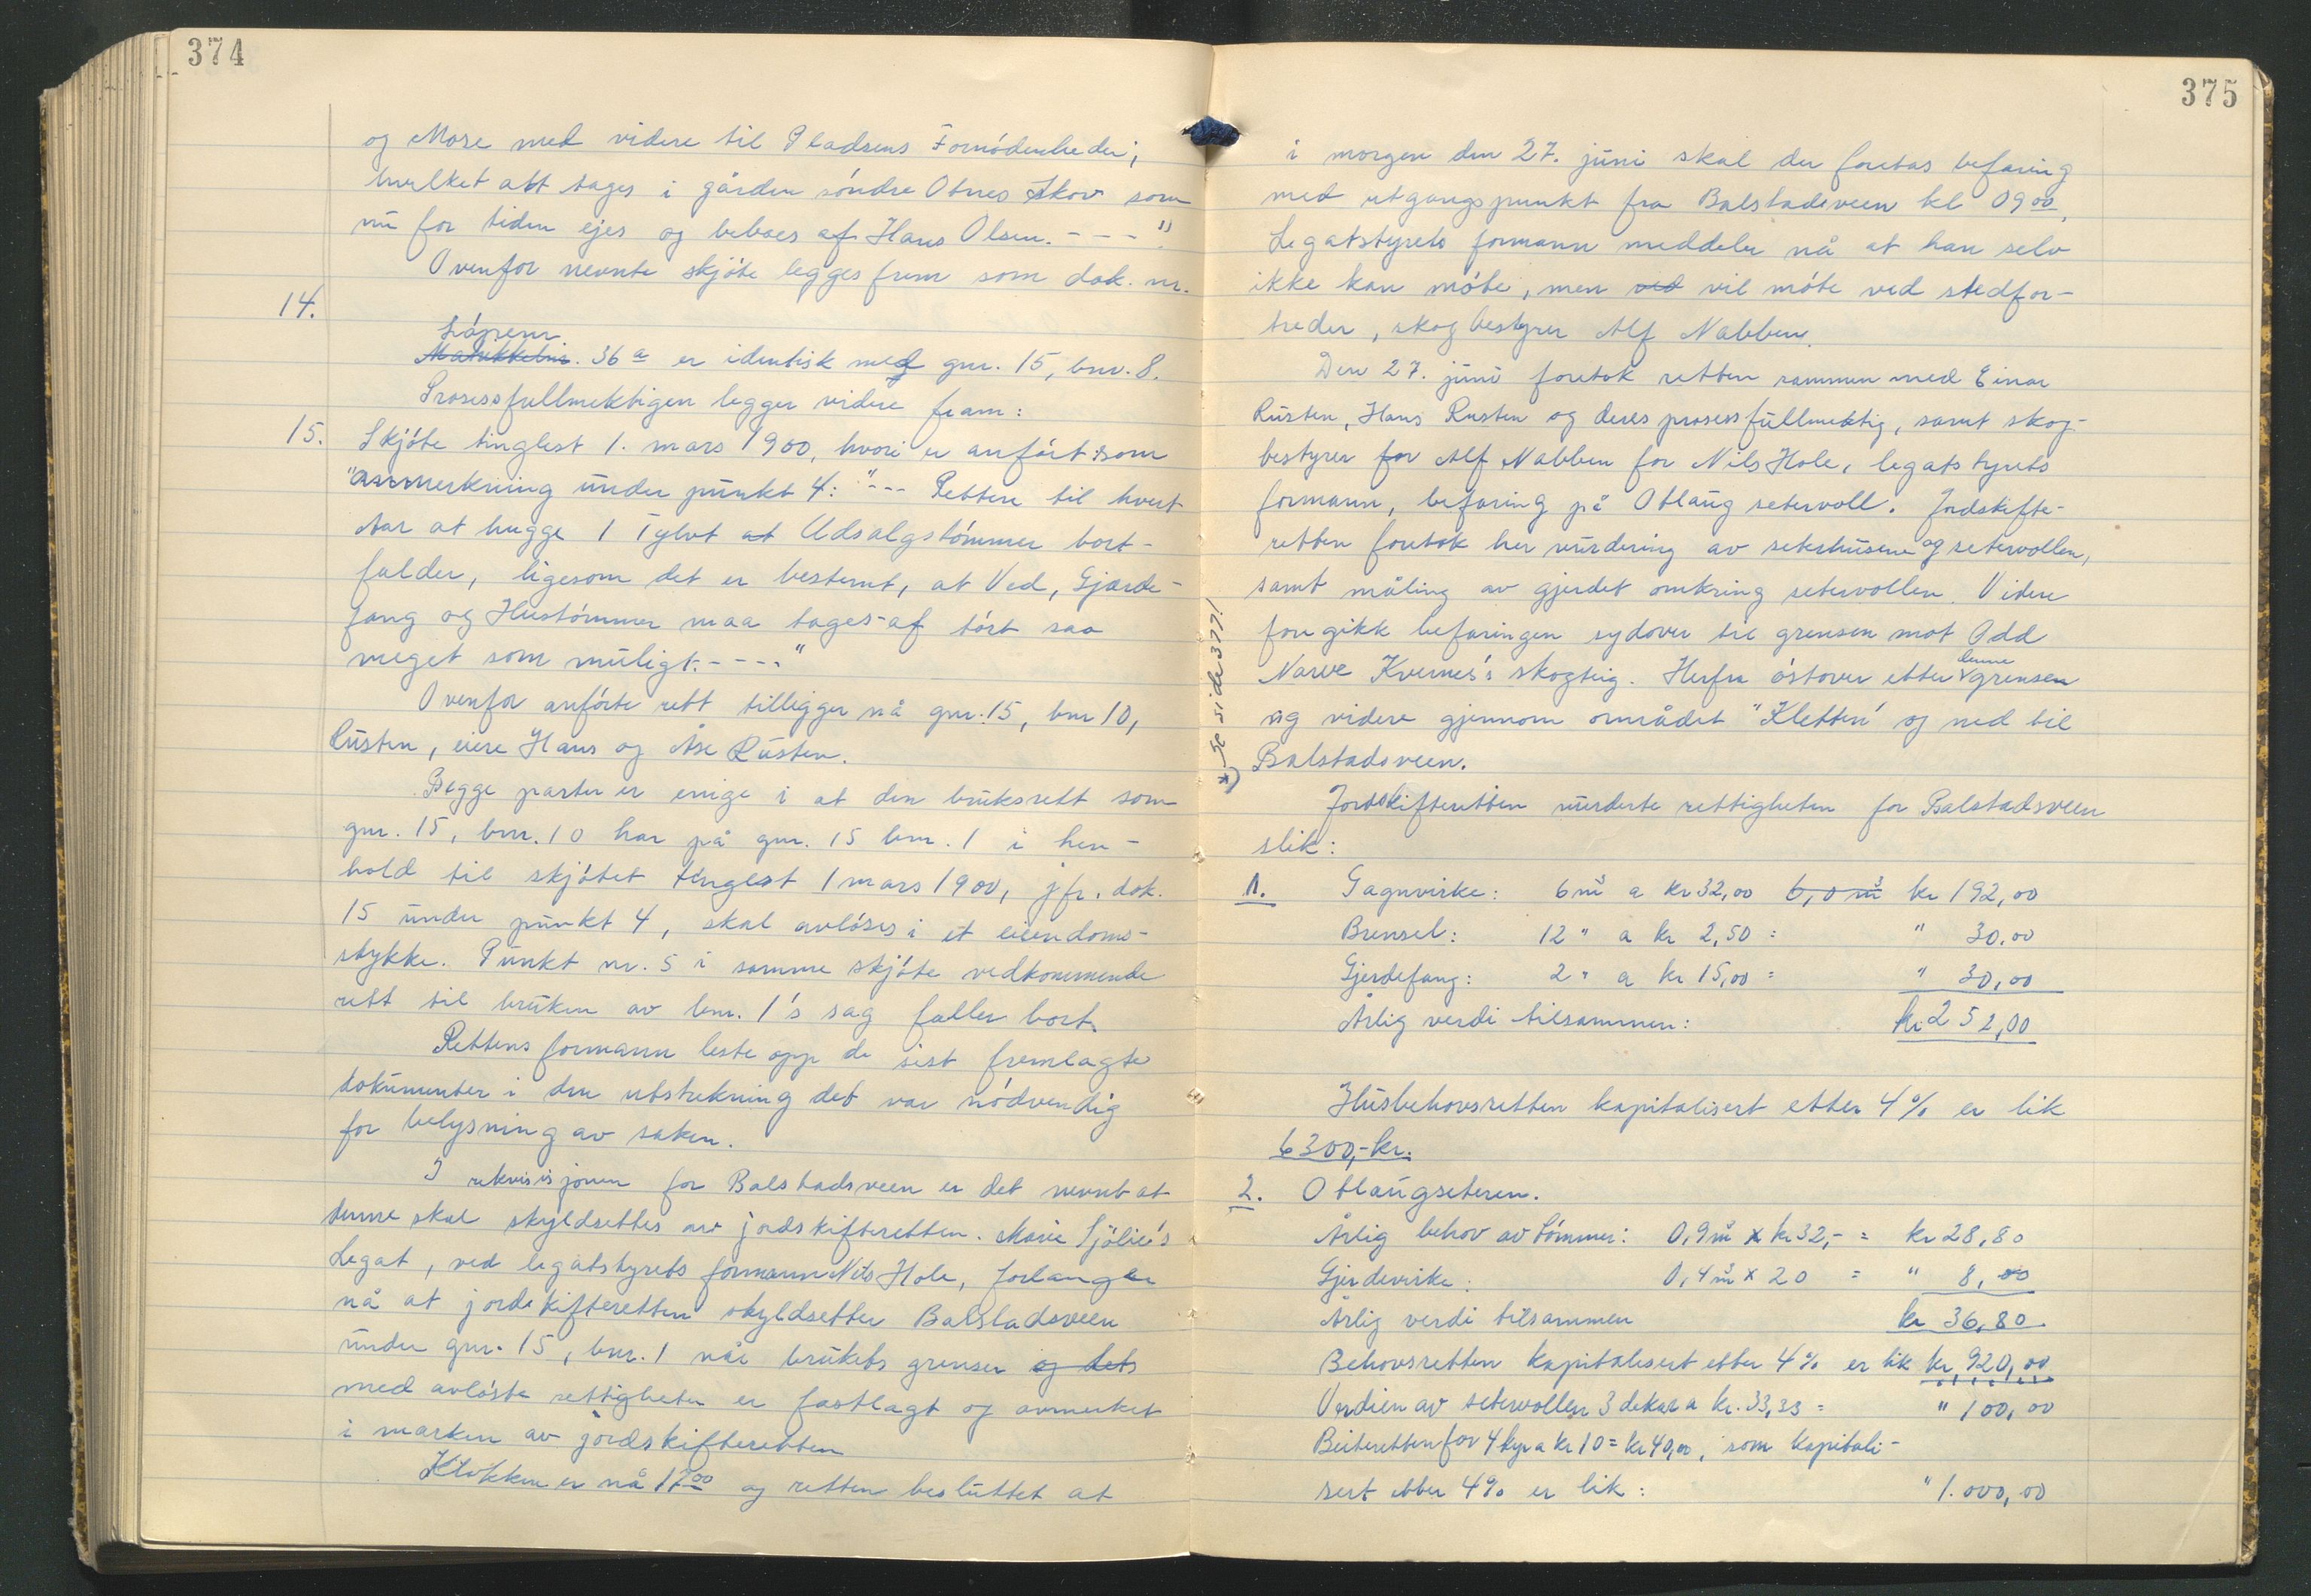 374
og Mose med videre til Pladsens Fornödenheder;
hvilket alt tages i gården söndre Otnes Skov som
nu for tiden ejes og beboes af Hans Olsen. - - - "
Ovenfor nevnte skjöte legges frem som dok. nr.
14.
Löpenr
Matrikkelnr. 36 a er identisk med gnr. 15, bnr. 8.
Prosessfullmektigen legger videre fram:
15. Skjöte tinglest 1. mars 1900, hvori er anfört som
"anmerkning under punkt 4: "--- Retten til hvert
Aar at hugge 1 Tylvt at Udsalgstömmer bort-
falder, ligesom det er bestemt, at Ved, Gjærde-
fang og Hustömmer maa tages af tört saa
meget som muligt. - - - - "
Ovenfor anförte rett tilligger nå gnr. 15, bnr 10,
Rusten, eiere Hans og Åse Rusten.
Begge parter er enige i at den bruksrett som
gnr. 15, bnr. 10 har på gnr. 15 bnr. 1 i hen-
hold til skjötet tinglest 1 mars 1900, jfr. dok.
15 under punkt 4, skal avlöses i et eiendoms-
stykke. Punkt nr. 5 i samme skjöte vedkommende
rett til bruken av bnr. 1's sag faller bort.
Rettens formann leste opp de sist fremlagte
dokumenter i den utstrekning det var nödvendig
for belysning av saken.
I rekvisisjonen for Balstadsveen er det nevnt at
denne skal skyldsettes av jordskifteretten. Marie Sjölie's
Legat, ved legatstyrets formann Nils Hole, forlanger
nå at jordskifteretten skyldsetter Balstadsveen
under gnr. 15, bnr. 1 når brukets grenser og dets
med avlöste rettigheter er fastlagt og avmerket
i marken av jordskifteretten
Klokken er nå 17 00 og retten besluttet at
375
i morgen den 27. juni skal der foretas befaring
med utgangspunkt fra Balstadsveen kl 09 00.
Legatstyrets formann meddeler nå at han selv
ikke kan möte, men ved vil möte ved stedfor-
treder, skogbestyrer Alf Nabben.
Den 27. juni foretok retten sammen med Einar
Rusten, Hans Rusten og deres prosessfullmektig, samt skog-
bestyrer for Alf Nabben for Nils Hole, legatstyrets
formann, befaring på Otlaug setervoll. Jordskifte-
retten foretok her vurdering av seterhusene og setervollen,
samt måling av gjerdet omkring setervollen. Videre
foregikk befaringen sydover til grensen mot Odd
Narve Kvernes's skogteig. Herfra östover etter denne grensen
og videre gjennom området "Kletten" og ned til
Balstadsveen.
x) Se side 377!
Jordskifteretten vurderte rettigheten for Balstadsveen
slik:
1. Gagnvirke: 6 m³ a kr 32,00 6,0 m³ kr 192,00
Brensel: 12 " a kr 2,50 = " 30.00
Gjerdefang: 2 " a kr 15,00 = " 30,00
Årlig verdi tilsammen: kr 252,00
Husbehovsretten kapitalisert etter 4 % er lik
6300,- kr.
2. Otlaugseteren.
Årlig behov av tömmer: 0,9 m³ x kr 32,- = kr 28,80
Gjerdevirke: 0,4 m³ x 20 = " 8,00
Årlig verdi tilsammen kr 36,80
Behovsretten kapitalisert etter 4 % er lik kr 920,00
Verdien av setervollen 3 dekar a kr. 33,33 = " 100,00
Beiteretten for 4 kyr a kr 10 = kr 40,00, som kapitali-
sert etter 4 % er lik: " 1.000,00